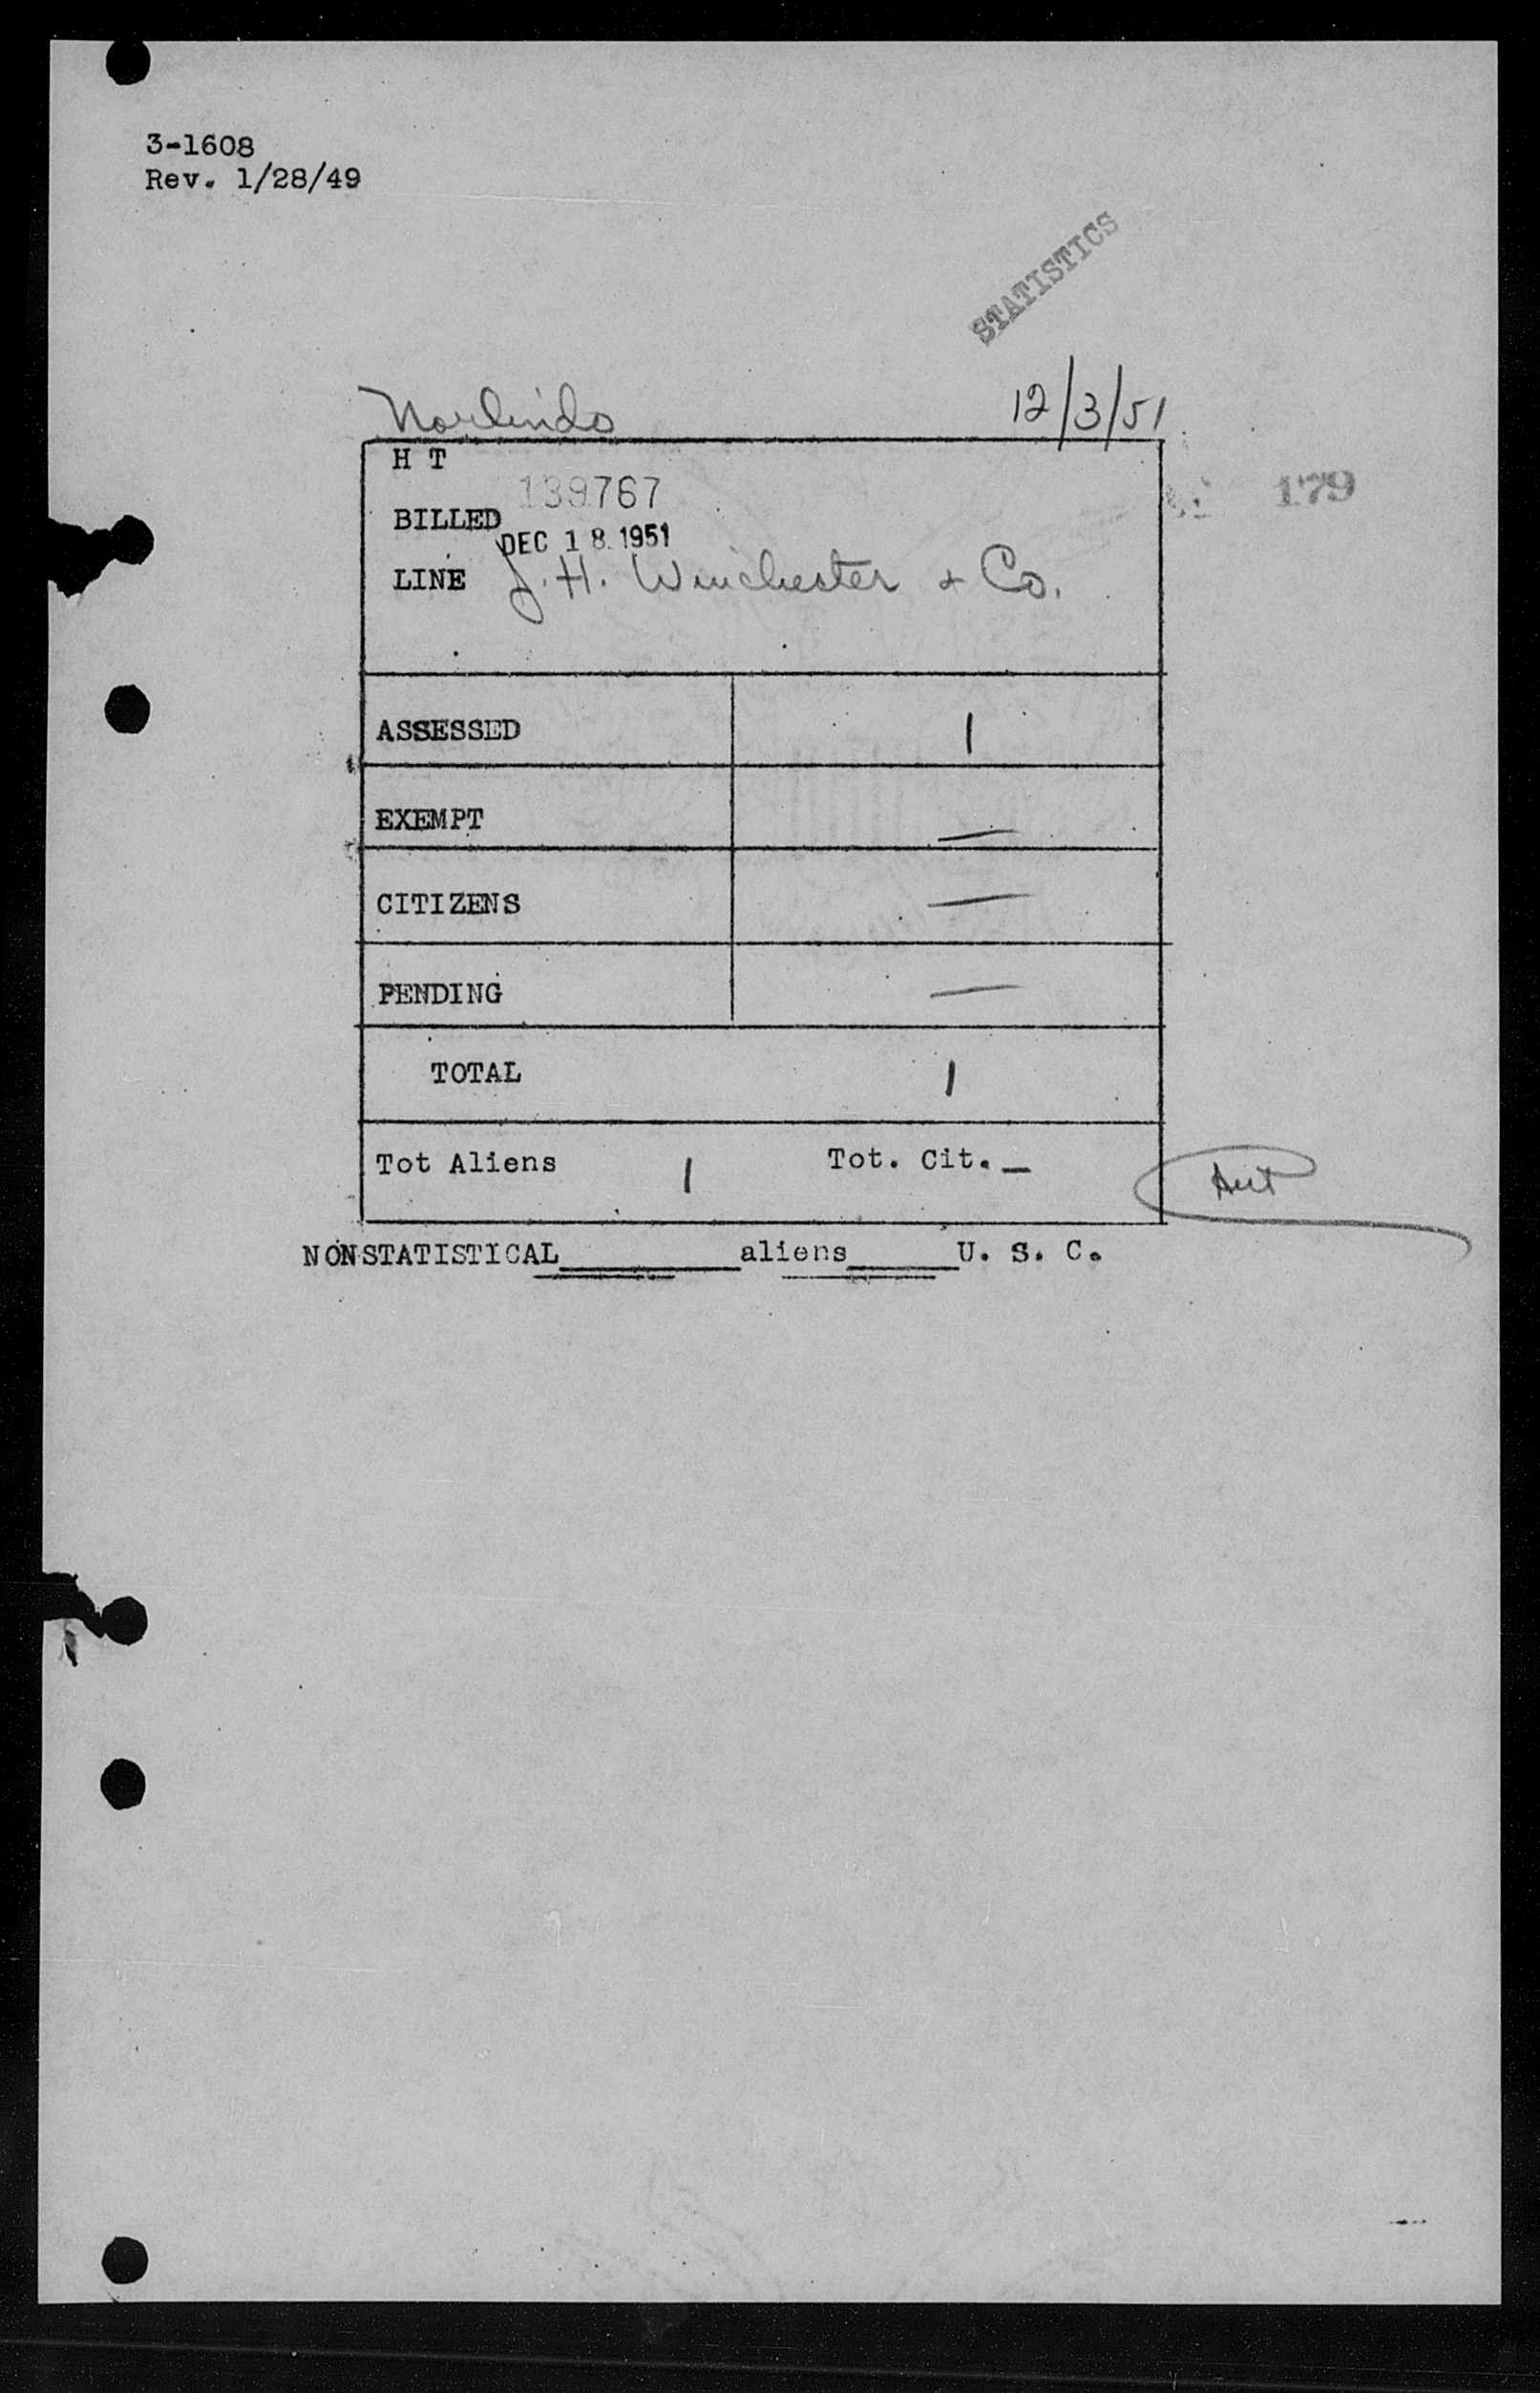 3-1608
Rev. 1/28/49
STATISTICS
Norlindo 12/3/51
H T
139767
179
BILLED
DEC 18 1951
LINE J. H. Winchester & Co.
ASSESSED 1
EXEMPT —
CITIZENS —
PENDING —
TOTAL 1
Tot Aliens 1 Tot. Cit. —
NONSTATISTICAL________aliens_____U. S. C.